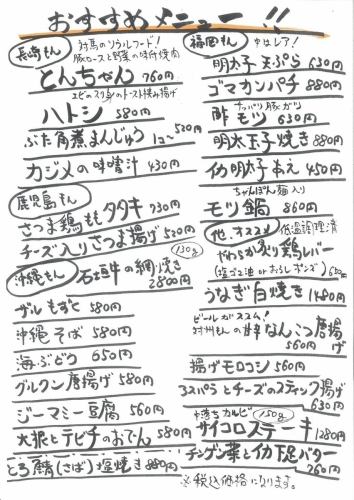 おすすめメニュー!!
長崎もん
対馬のソウルフード!
豚ロースと野菜の味付焼肉
とんちゃん 760円
エビのスリ身のトースト挟み揚げ
ハトシ 580円
ぶた角煮まんじゅう 1コ〜 520円
カジメの味噌汁 430円
鹿児島もん
さつま鶏ももタタキ 930円
チーズ入りさつま揚げ 520円
沖縄もん
130g
石垣牛の網焼き 2800円
ザルもずく 580円
沖縄そば 580円
海ぶどう 650円
グルクン唐揚げ 580円
ジーマミー豆腐 580円
大根とテビチのおでん 580円
とろ鯖(さば)塩焼き 880円
福岡もん
中はレア!
明太子天ぷら 630円
ゴマカンパチ 880円
サッパリ豚ガツ
酢モツ 630円
明太玉子焼き 880円
イカ明太子あえ 450円
ちゃんぽん麺入り
モツ鍋 860円
他、オススメ
低温調理済
やわらか炙り鶏レバー
(塩ゴマ油 or おろしポンズ) 630円
うなぎ白焼き 1480円
ビールがススム!
対州もんの
なんこつ唐揚げ 560円
揚げモロコシ 560円
アスパラとチーズのスティック揚げ 630円
中落ちカルビ 150g
サイコロステーキ 1280円
チンゲン菜とイカ下足バター 760円
※税込価格になります。